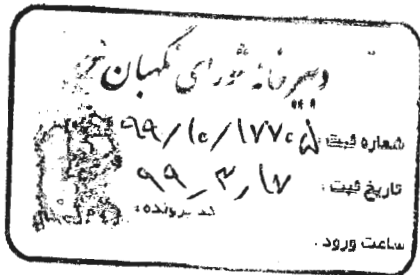 دبیرخانه شورای نگهبان
شماره ثبت: ۹۹/۱۰۲/۱۷۷۲۵
تاریخ ثبت: ۹۹/۳/۱۷
کد پرونده:
ساعت ورود: